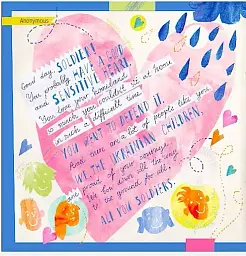 Anonymous
Good day, SOLDIER!
You probably HAVE A GOOD
and SENSITIVE HEART.
You love your homeland
so much, you couldn't at home
in such a difficult time
YOU WANT TO DEFEND IT.
And there are a lot of people like you
WE, THE UKRAINIAN CHILDREN,
are proud of your courage
We bow down all the way
to the ground for all!
ALL YOU SOLDIERS.